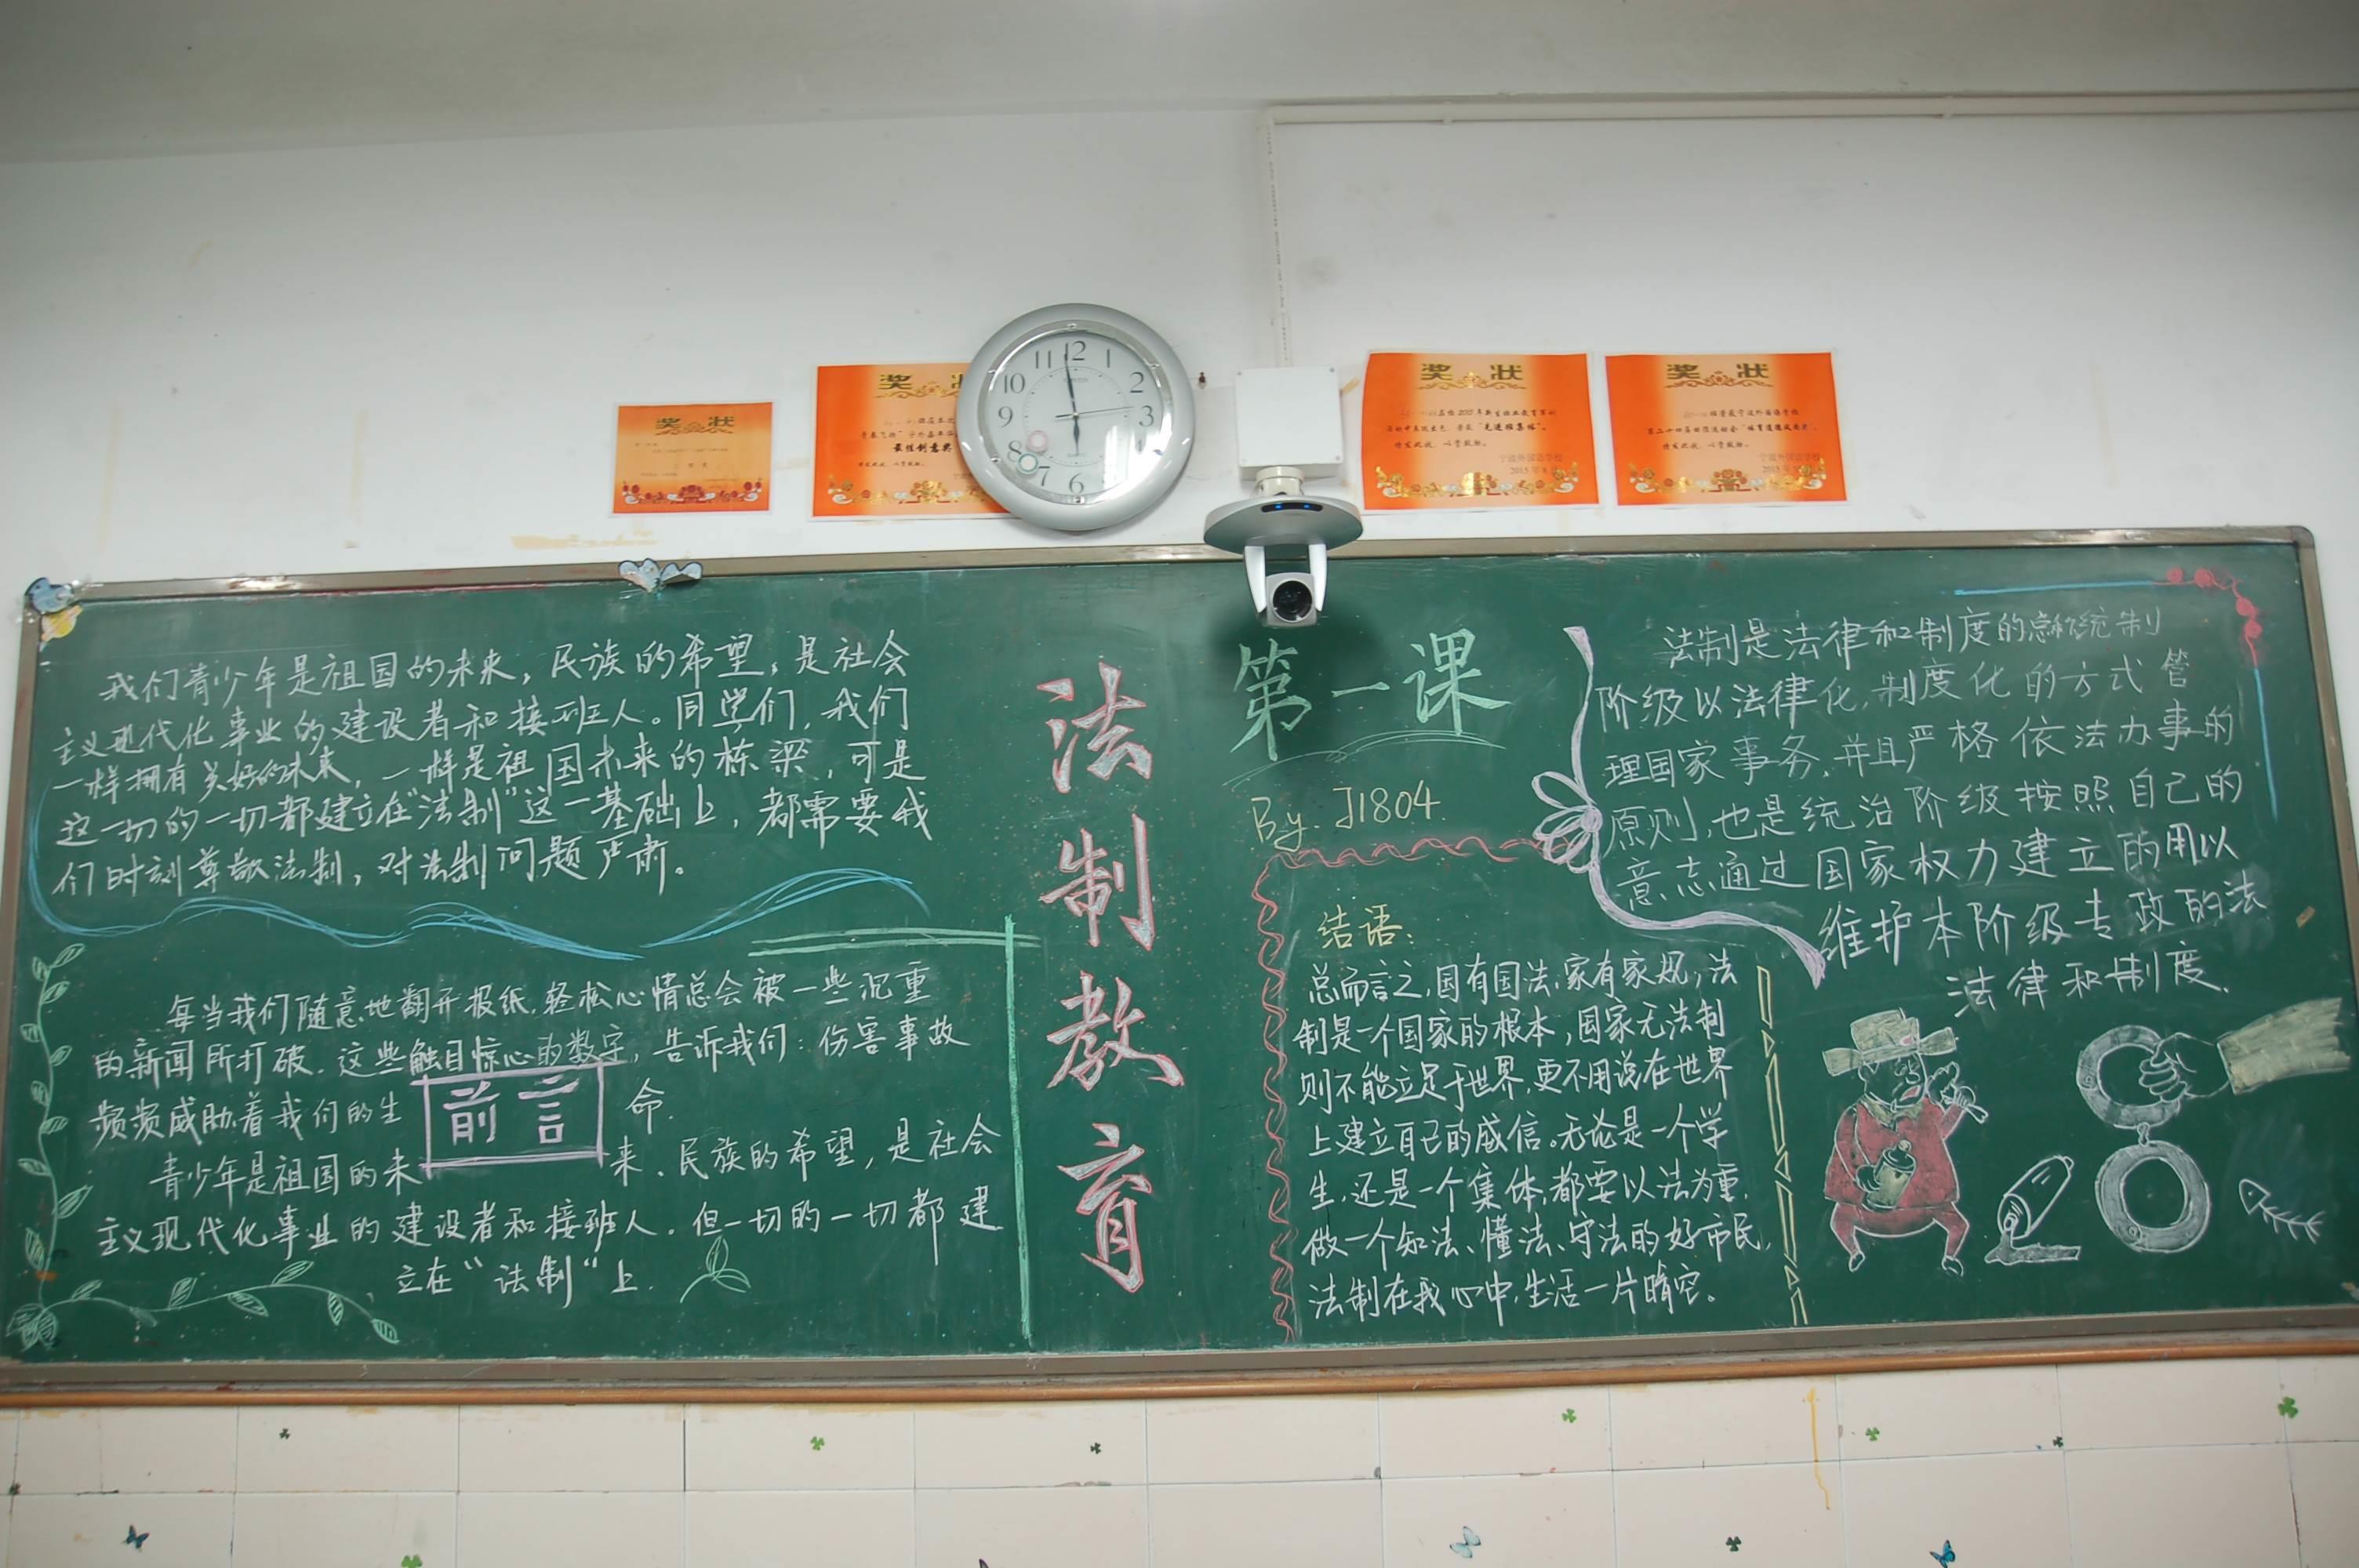 奖 状
奖 状
最佳创意奖
特发此状，以资鼓励。
12
11
1
10
2
9
3
8
4
7
6
奖 状
"先进班集体"。
特发此状，以资鼓励。
宁波外国语学校
2015年8
奖 状
特发此状，以资鼓励。
宁波外国语学校
我们青少年是祖国的未来，民族的希望，是社会
主义现代化事业的建设者和接班人。同学们，我们
一样拥有美好的未来，一样是祖国未来的栋梁，可是
这一切的一切都建立在"法制"这一基础上，都需要我
们时刻尊敬法制，对法制问题严肃。
每当我们随意地翻开报纸，轻松心情总会被一些沉重
的新闻所打破．这些触目惊心的数字，告诉我们：伤害事故
频频威胁着我们的生 命．
前言
青少年是祖国的未 来、民族的希望，是社会
主义现代化事业的建设者和接班人．但一切的一切都建
立在"法制"上．
法制教育
第一课
By. J1804.
结语：
总而言之，国有国法，家有家规，法
制是一个国家的根本，国家无法制
则不能立足于世界，更不用说在世界
上建立自己的威信。无论是一个学
生，还是一个集体，都要以法为重，
做一个知法、懂法、守法的好市民，
法制在我心中，生活一片晴空。
法制是法律和制度的总称统制
阶级以法律化，制度化的方式管
理国家事务，并且严格依法办事的
原则，也是统治阶级按照自己的
意志通过国家权力建立的用以
维护本阶级专政的法
法律和制度．